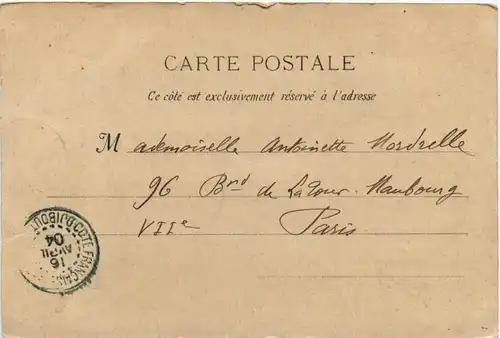 CARTE POSTALE
Ce côté est exclusivement réservé à l'adresse
Mademoiselle Antoinette Mordrelle
96 Brd de Latour-Maubourg
VIIe Paris
16
AVRIL
04